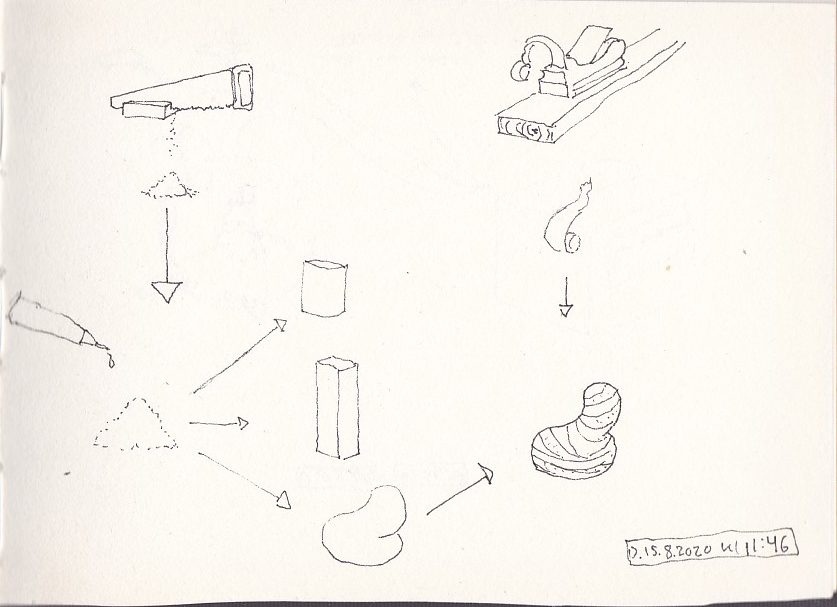 D.15.8.2020 11:46